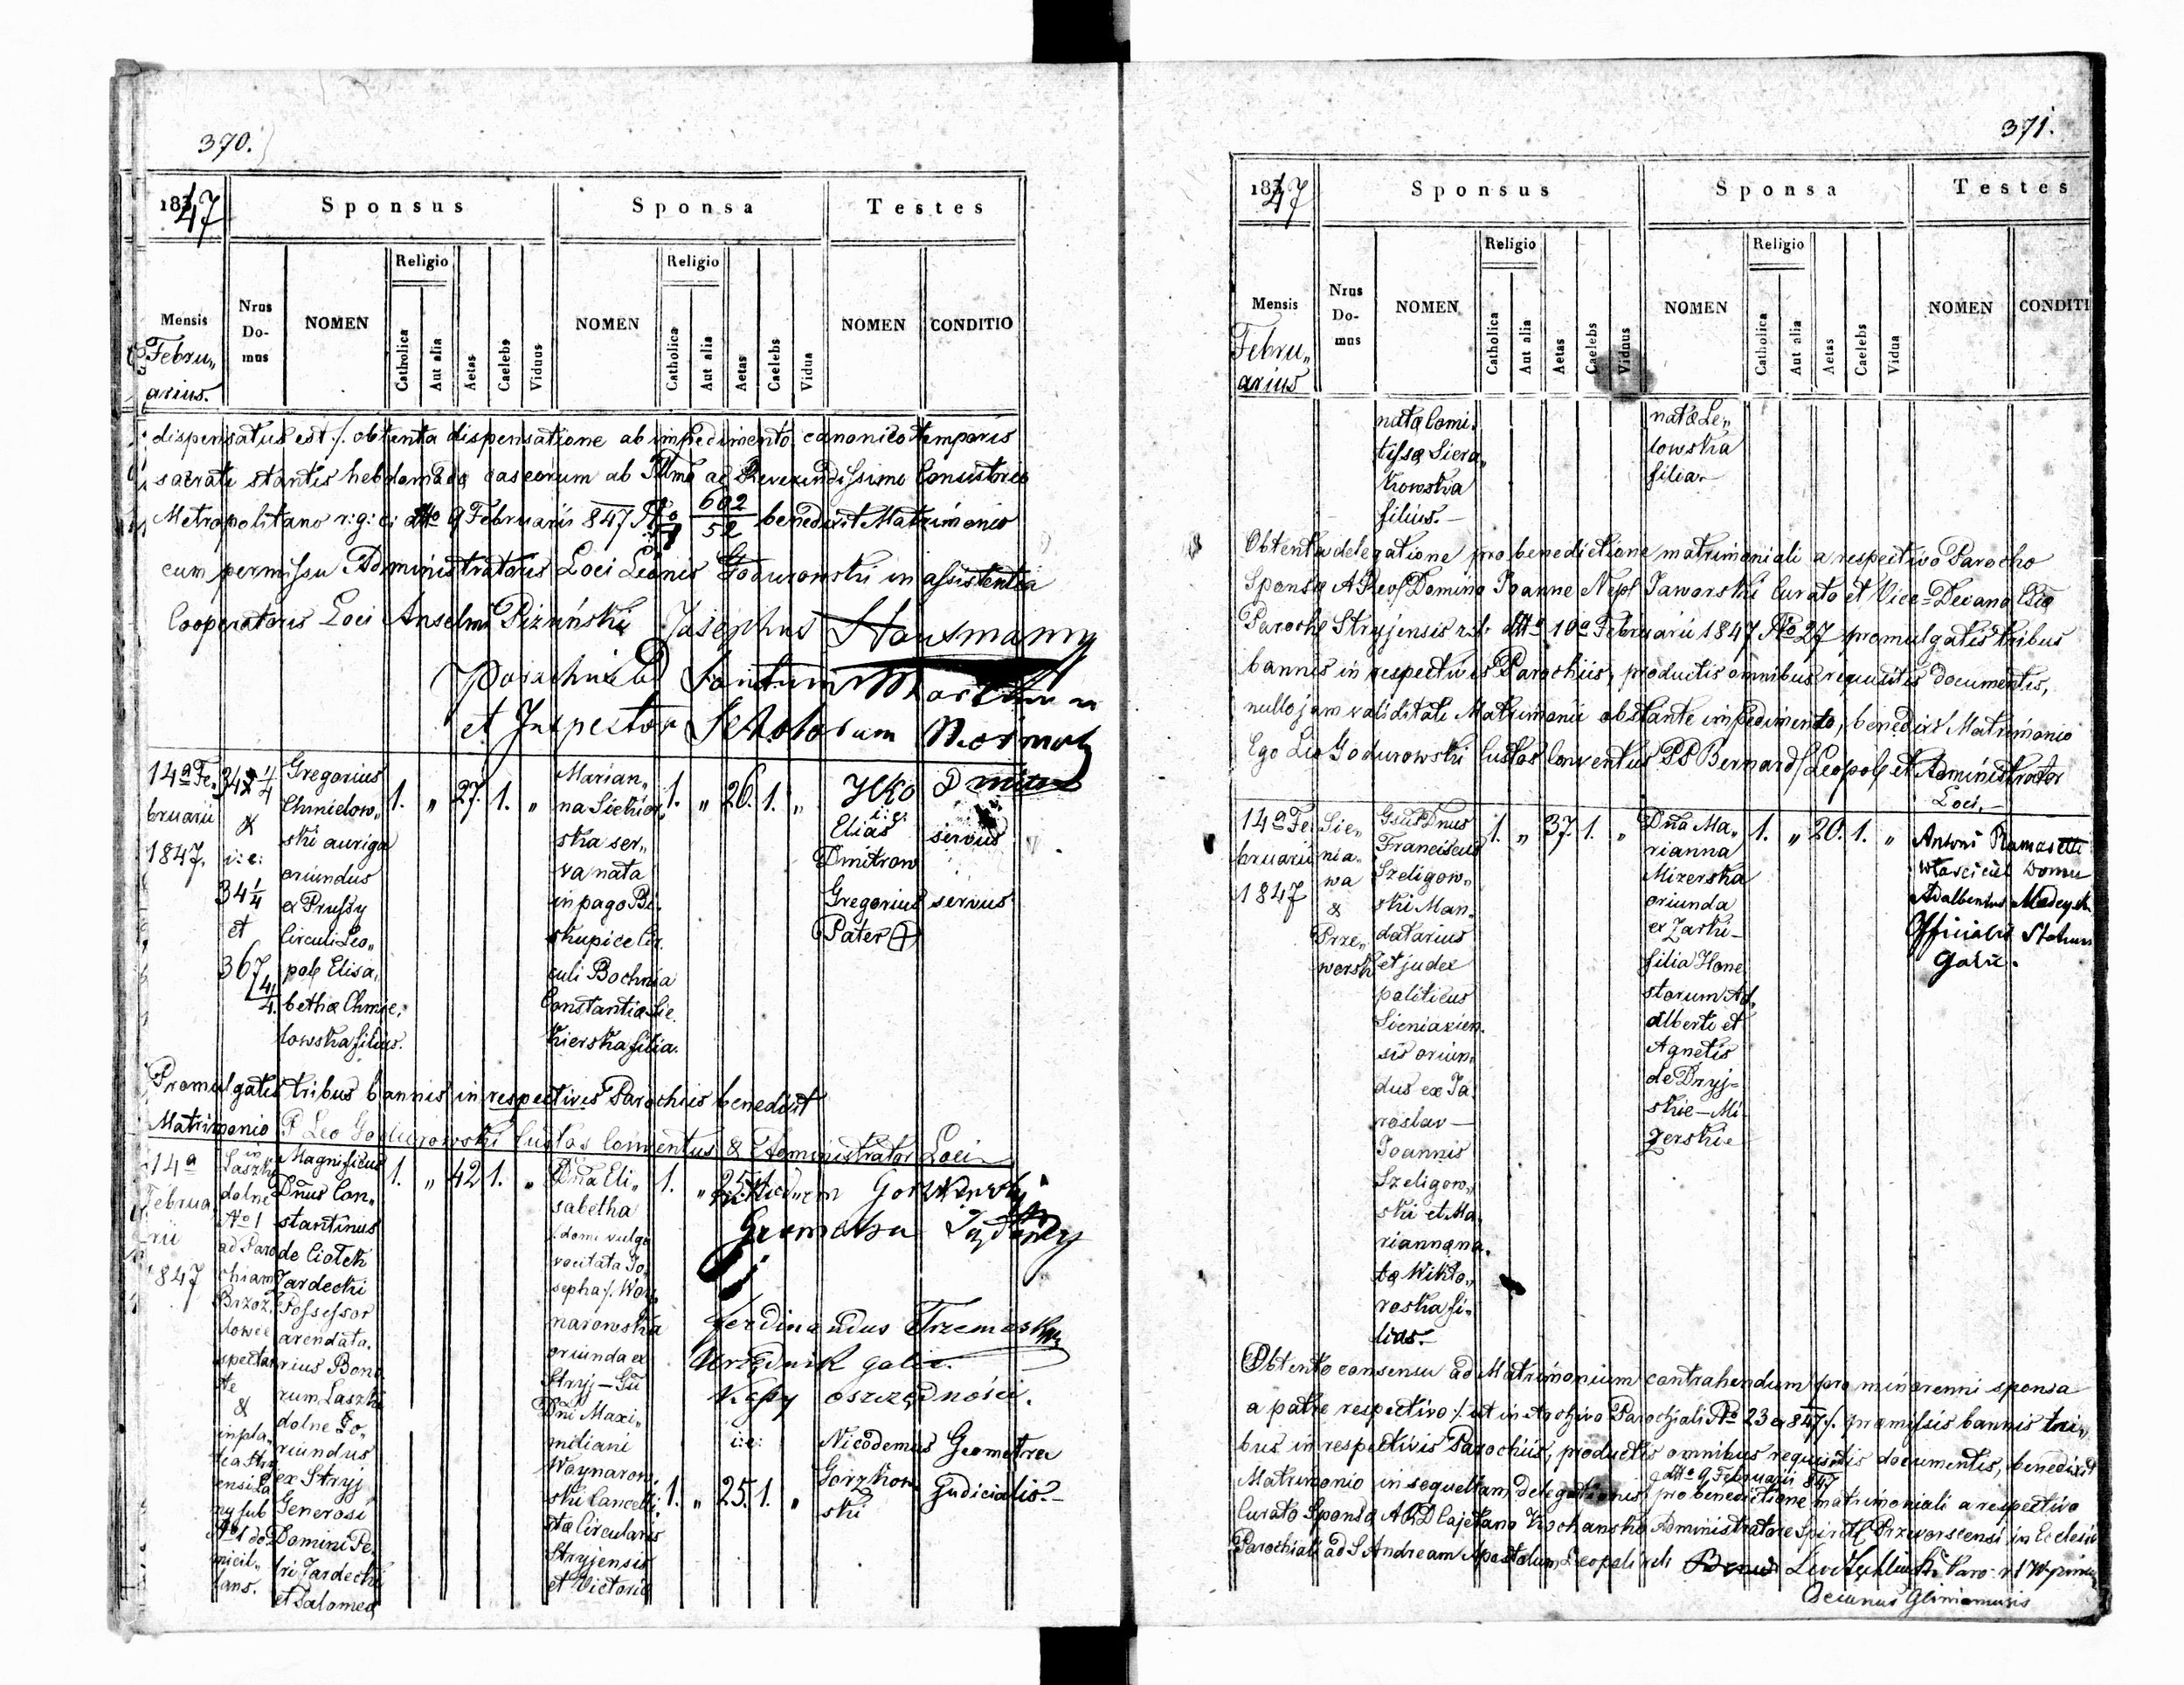 370.
1847
Sponsus
Sponsa
Testes
Mensis
Febru„
arius.
Nrus
Do-
mus
NOMEN
Religio
Catholica
Aut alia
Aetas
Caelebs
Viduus
NOMEN
Religio
Catholica
Aut alia
Aetas
Caelebs
Vidua
NOMEN
CONDITIO
dispensatus est ./. obtenta dispensatione ab impedimento canonico temporis
sacrati stantis hebdomada casearum ab Illmo ac Reverendissimo Consistorio
Metropolitano r: g: c: dtto 9 Februarii 847 No 602/52 benedixit Matrimonio
cum permissu Administratoris Loci Leonis Godurowski in assistentia
Cooperatoris Loci Anselmi Piziński Josephus Hausmann
Parochus ad Sanctum Martinum
et Inspector Scholarum Normal
14a Fe„
bruarii
1847.
34 4/4
&
i: e:
34 1/4
et
367
4/4
Gregorius
Chmielow„
ski auriga
oriundus
ex Prussy
Circuli Leo„
pol Elisa„
betha Chmie„
lowska filius.
1. „ 27. 1. „
Marian„
na Siekier„
ska ser„
va nata
in pago Bi„
skupice Cir„
culi Bochnia
Constantia Sie„
kierska filia.
1. „ 26. 1. „
Ilko Dmitrow
i: e:
Elias servus
Dmitrow
Gregorius servus
Pater (+)
Promulgatis tribus bannis in respectivis Parochiis benedixit
Matrimonio P Leo Godurowski Custos Conventus & Administrator Loci
14a
Februa
rii
1847
in
Laszki
dolne
No 1
ad Paro
chiam
Brzoz„
dowce
spectan
te
&
in pla„
tea Stry
ensi La
ny sub
No 1 do
micil„
lans.
Magnificus
Dnus Con„
stantinus
de Ciołek
Jardecki
Possessor
arendata„
rius Bono
rum Laszki
dolne Lo„
riundus
ex Stryj
Generosi
Domini Pe
tri Jardecki
et Salomea
1. „ 42 1. „
Dna Eli„
sabetha
/. domi vulgo
vocitata Jo„
sepha /. Way„
narowska
oriunda ex
Stryj — Gu
Dni Maxi„
miliani
Waynarow„
ski Cancelli„
sta Circularis
Stryjensis
et Victoria
1. „ 25. 1.
Nikodem Gorzkowski
Geometra Sądowy
Ferdinandus Trzemeski
Urzędnik galic.
Kassy oszczędności.
i: e: Nicodemus Geometra
Gorzkow„ Judicialis. —
ski
1. „ 25. 1. „
371.
1847
Sponsus
Sponsa
Testes
Mensis
Febru„
arius
Nrus
Do-
mus
NOMEN
Religio
Catholica
Aut alia
Aetas
Caelebs
Viduus
NOMEN
Religio
Catholica
Aut alia
Aetas
Caelebs
Vidua
NOMEN
CONDITI
nata Comi„
tissa Siera„
kowska
filius. —
nata Le„
towska
filia. —
Obtenta delegatione pro benedictione matrimoniali a respectivo Parocho
Sponsa A Rev Domino Joanne Nep Jaworski Curato et Vice-Decano
Parocho Stryjensis r: l: dtto 10a Februarii 1847 No 27 promulgatis tribus
bannis in respectivis Parochiis, productis omnibus requisitis documentis,
nullo jam validitati Matrimonii obstante impedimento, benedixi Matrimonio
Ego Leo Godurowski Custos Conventus PP Bernard Leopol et Administrator
Loci. —
14a Fe
bruarii
1847
Sie„
nia„
wa
&
Prze„
worsk
Gsus Dnus
Franciscus
Szeligow„
ski Man„
datarius
et judex
politicus
Sieniavien„
sis oriun„
dus ex Ja„
roslav —
Joannis
Szeligow„
ski et Ma„
rianna na„
ta Wikto„
roska fi„
lius. —
1. „ 37. 1. „
Dna Ma„
rianna
Mizerska
oriunda
ex Zarki —
filia Hone
storum Ad„
alberti et
Agnetis
de Dryj„
skie — Mi„
zerskie
1. „ 20. 1. „
Antoni Ramasetti
właściciel Domu
Adalbertus Madeyski
Officialis Statuum
Galic.
Obtento consensu ad Matrimonium contrahendum pro minorenni sponsa
a patre respectivo /: ut in Archivo Parochiali No 23 a 847 /. pramissis bannis tri„
bus in respectivis Parochiis, productis omnibus requisitis documentis, benedixit
dtto 9 Februarii 847
Matrimonio in sequellam delegationis pro benedictione matrimoniali a respectivo
Curato Sponsa A R D Cajetano Kochanski Administratore Spirit Przeworscensi in Ecclesia
Parochiali ad S Andream Apostolum Leopoli
Decanus Glinianensis